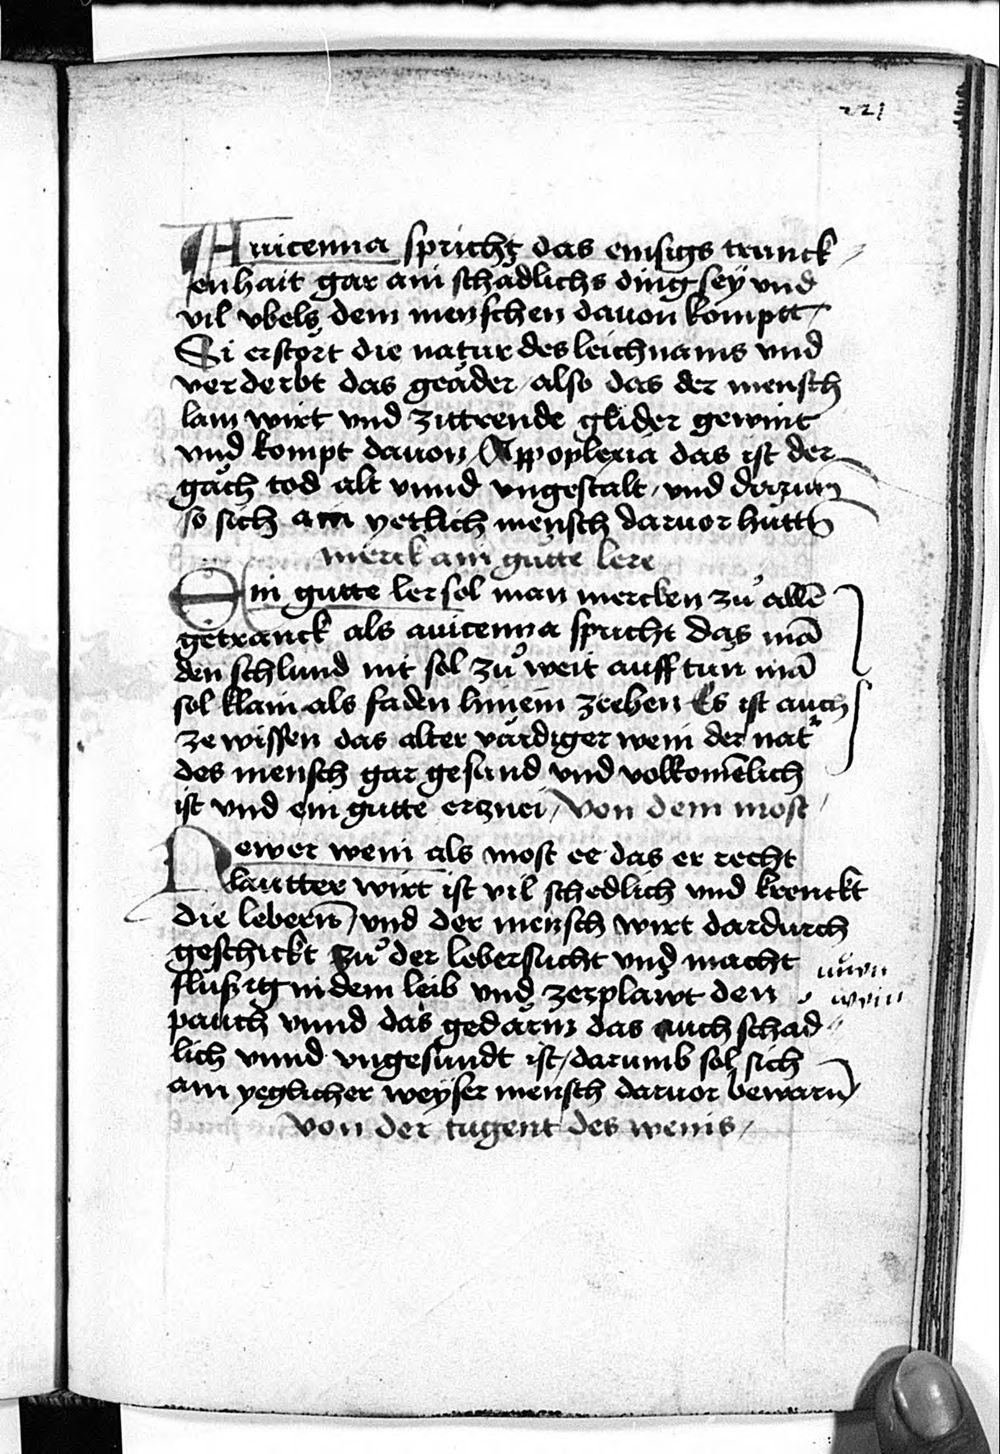 221
Auicenna spricht das emsigs trunck
enhait gar ain schädlichs ding seÿ vnd
vil vbels dem menschen dauon komptt
Si erstört die natur des leichnams vnd
verderbt das geäder also das der mensch
lam wirt vnd zittrende glider gewint
vnd kompt dauon Appoplexia das ist der
gäch tod alt vnnd vngestalt / vnd darzum
so sich ain yetlich mensch daruor hütt
merck ain gutte lere
Ein gutte ler sol man mercken zů allē
getranck als auicenna spricht das mā
den schlund nit sol zů weit auff tun mā
sol klain als faden hinein ziehen Es ist auch
ze wissen das alter värdiger wein der nat
des mensch gar gesund vnd volkomēlich
ist vnd ein gutte ertznei / von dem most /
Newer wein als most ee das er recht
lautter wirt ist vil schedlich vnd krenckt
die lebern / vnd der mensch wirt dardurch
geschickt zů der lebersucht vnd macht
flüßig in dem leib vnd zerplawt den
nüwn
wein
pauch vnnd das gedärm das auch schad
lich vnnd vngesundt ist / darumb sol sich
ain yeglicher weyser mensch daruor bewarn
von der tugent des weins /